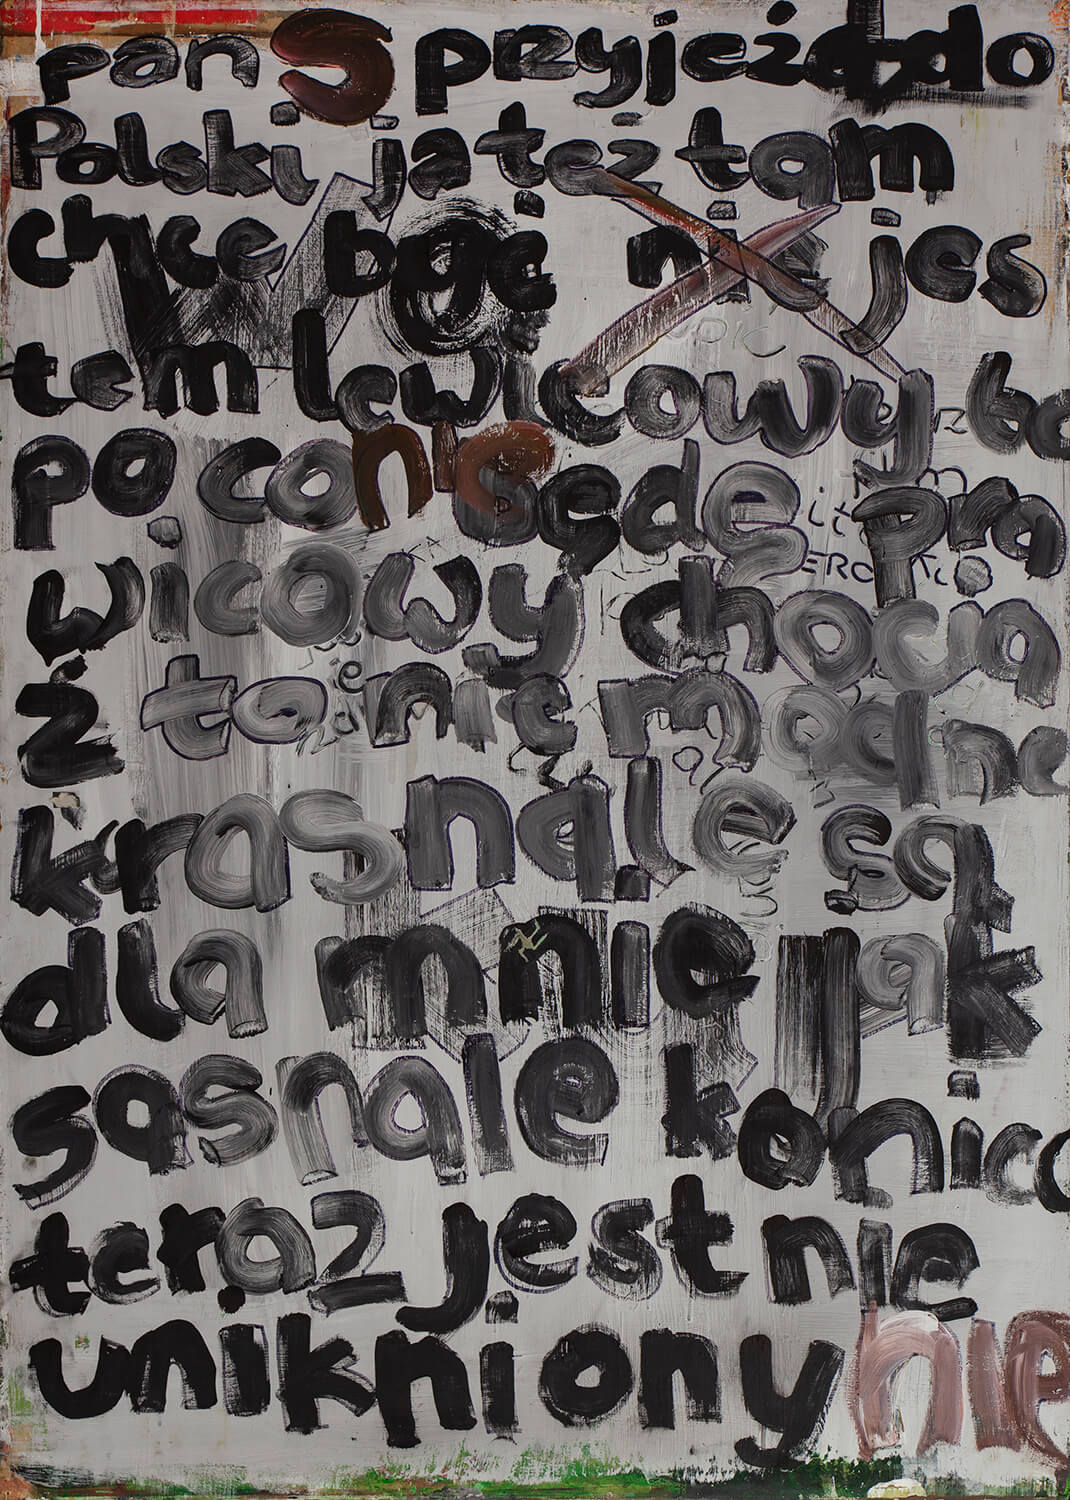 pan S przyjeżd do
Polski ja też tam
chce być nie jes
tem lewicowy bo
po co nie będę pra
wicowy chocia
ż to nie modne
krasnale są
dla mnie jak
sasnale konicc
teraz jest nie
unikniony nie